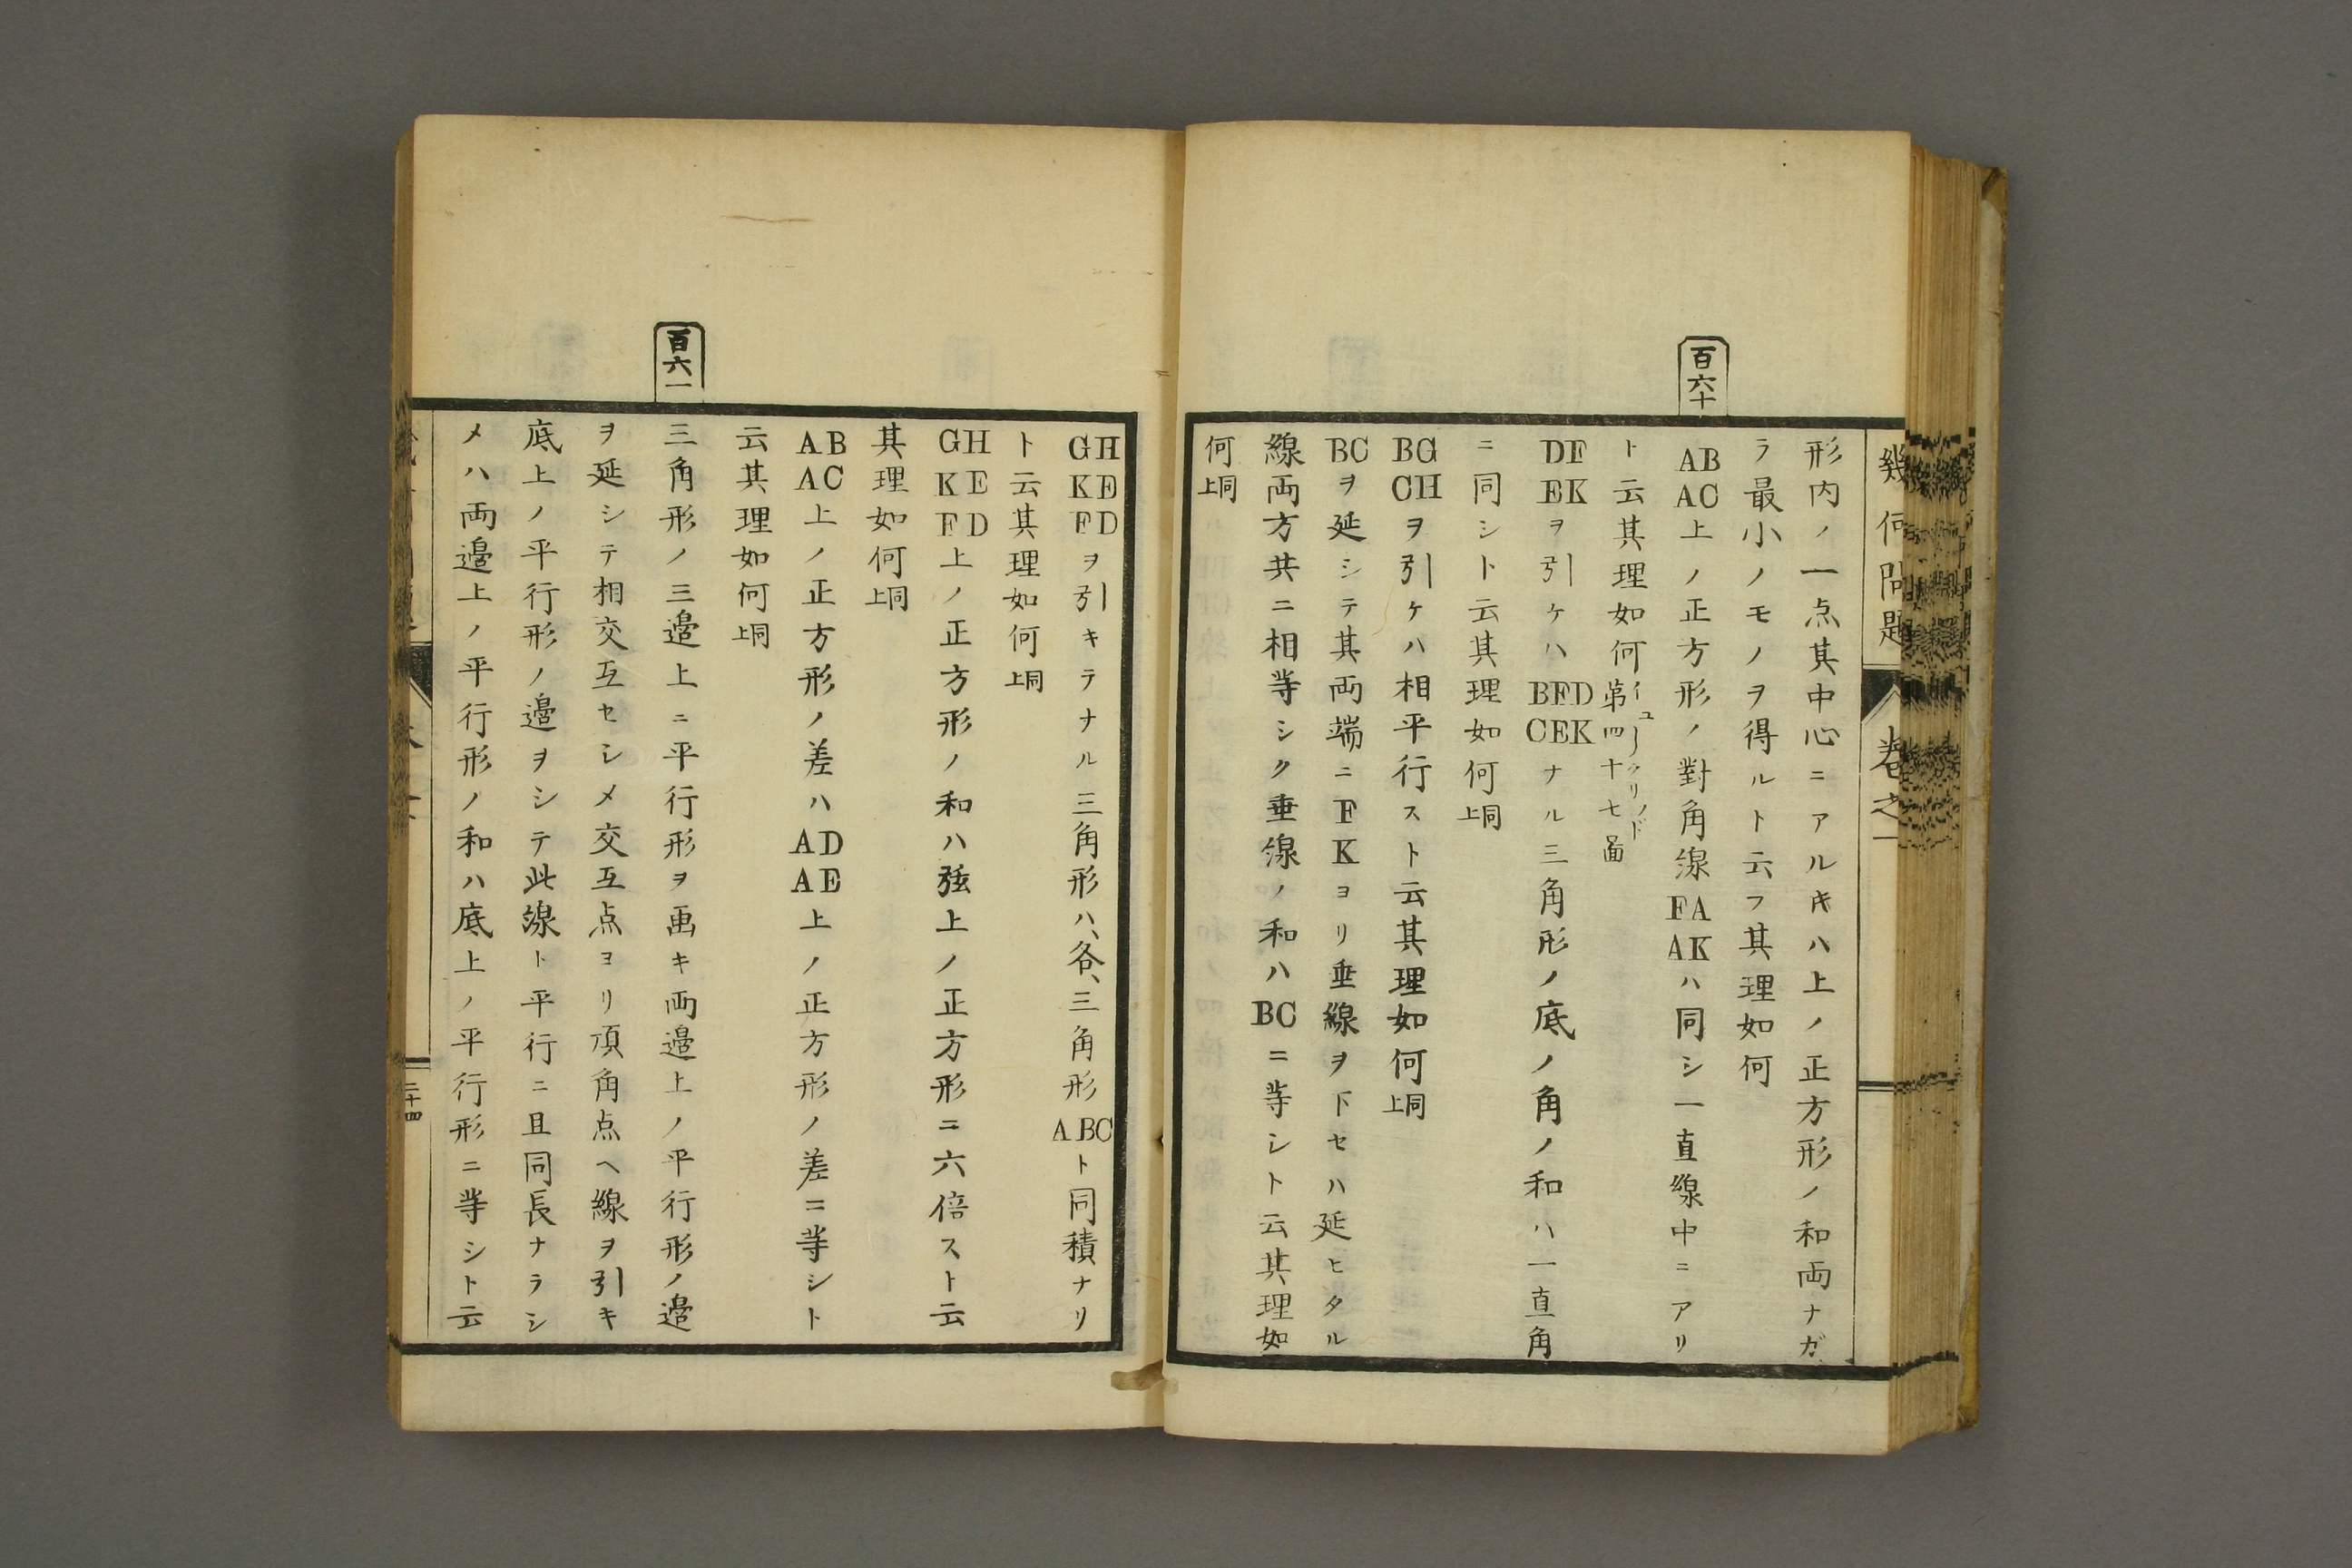 幾何問題
卷之一
形内ノ一点其中心ニアルキハ上ノ正方形ノ和両ナガ
ラ最小ノモノヲ得ルト云フ其理如何
百六十
AB AC上ノ正方形ノ對角線FA AKハ同シ一直線中ニアリ
ト云其理如何イユークリノド第四十七啚
DF EKヲ引ケハBFD CEKナル三角形ノ底ノ角ノ和ハ一直角
ニ同シト云其理如何同上
BG CHヲ引ケハ相平行スト云其理如何同上
BCヲ延シテ其両端ニF Kヨリ垂線ヲ下セハ延ヒタル
線両方共ニ相等シク垂線ノ和ハBCニ等シト云其理如
何同上
GH KE FDヲ引キテナル三角形ハ、各、三角形ABCト同積ナリ
ト云其理如何同上
GH KE FD上ノ正方形ノ和ハ弦上ノ正方形ニ六倍スト云
其理如何同上
AB AC上ノ正方形ノ差ハAD AE上ノ正方形ノ差ニ等シト
云其理如何同上
百六一
三角形ノ三邉上ニ平行形ヲ画キ両邉上ノ平行形ノ邉
ヲ延シテ相交互セシメ交互点ヨリ頂角点ヘ線ヲ引キ
底上ノ平行形ノ邉ヲシテ此線ト平行ニ且同長ナラシ
メハ両邉上ノ平行形ノ和ハ底上ノ平行形ニ等シト云
二十四